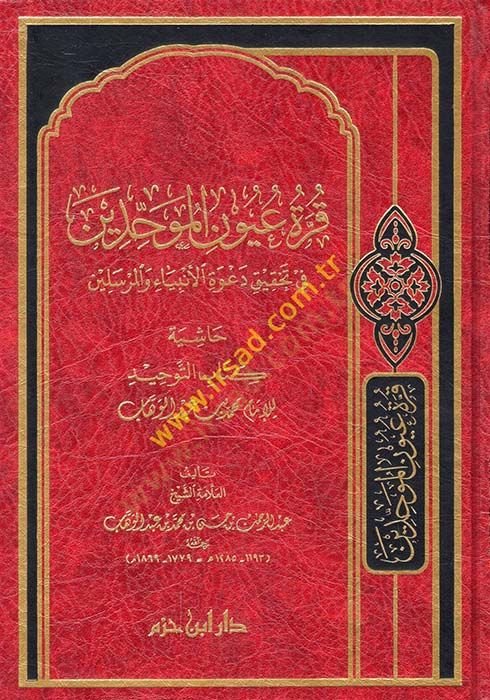 قُرَّةُ عُيُونِ المُوَحِّدِينَ
في تحقيق دعوة الأنبياء والمرسلين
حاشية
كتاب التوحيد
للإمام محمد بن عبد الوهاب
تأليف
العلامة الشيخ
عبد الرحمن بن حسن بن محمد بن عبد الوهاب
(١١٩٣ - ١٢٨٥ هـ = ١٧٧٩ - ١٨٦٩ م)
دار ابن حزم
قرة عيون الموحدين
www.irsad.com.tr